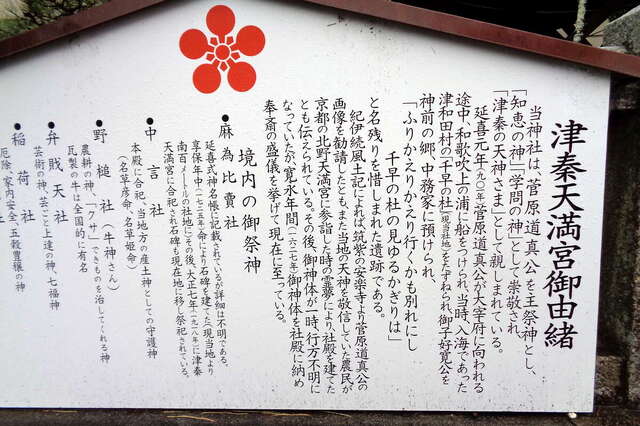 津秦天満宮御由緒
当神社は、菅原道真公を主祭神とし、
「知恵の神」「学問の神」として崇敬され、
「津秦の天神さま」として親しまれている。
延喜元年(九〇一年)菅原道真公が大宰府に向われる
途中、和歌吹上の浦に船をつけられ、当時、入海であった
津和田村の「千早の杜」(現当社地)をたずねられ、御子好寛公を
神前の郷、中務家に預けられ、
「ふりかえりかえり行くかも別れにし
千早の杜の見ゆるかぎりは」
と名残りを惜しまれた遺跡である。
紀伊続風土記によれば、筑紫の安楽寺より菅原道真公の
画像を勧請したとも、また当地の天神を敬信していた農民が
京都の北野天満宮に参詣した時の霊夢により、社殿を建てた
とも伝えられている。その後、御神体が一時、行方不明に
なっていたが、寛永年間(一六二七年)御神体を社殿に納め
奉斎の盛儀を挙げて現在に至っている。
境内の御祭神
●麻為比賣社
延喜式神名帳に記載されているが詳細は不明である。
享保年中(一七二五年)命により石碑を建てた(現当地より
南百メートルの社地に)その後、大正七年(一九一八年)に津秦
天満宮に合祀され石碑も現在地に移し祭祀されている。
●中言社
本殿に合祀、当地方の産土神としての守護神
(名草彦命、名草姫命)
●野槌社(牛神さん)
農耕の神、「クサ」できものを治してくれる神
瓦製の牛は全国的に有名
●弁戝天社
芸術の神、芸ごと上達の神、七福神
●稲荷社
厄除、家内安全、五穀豊穣の神